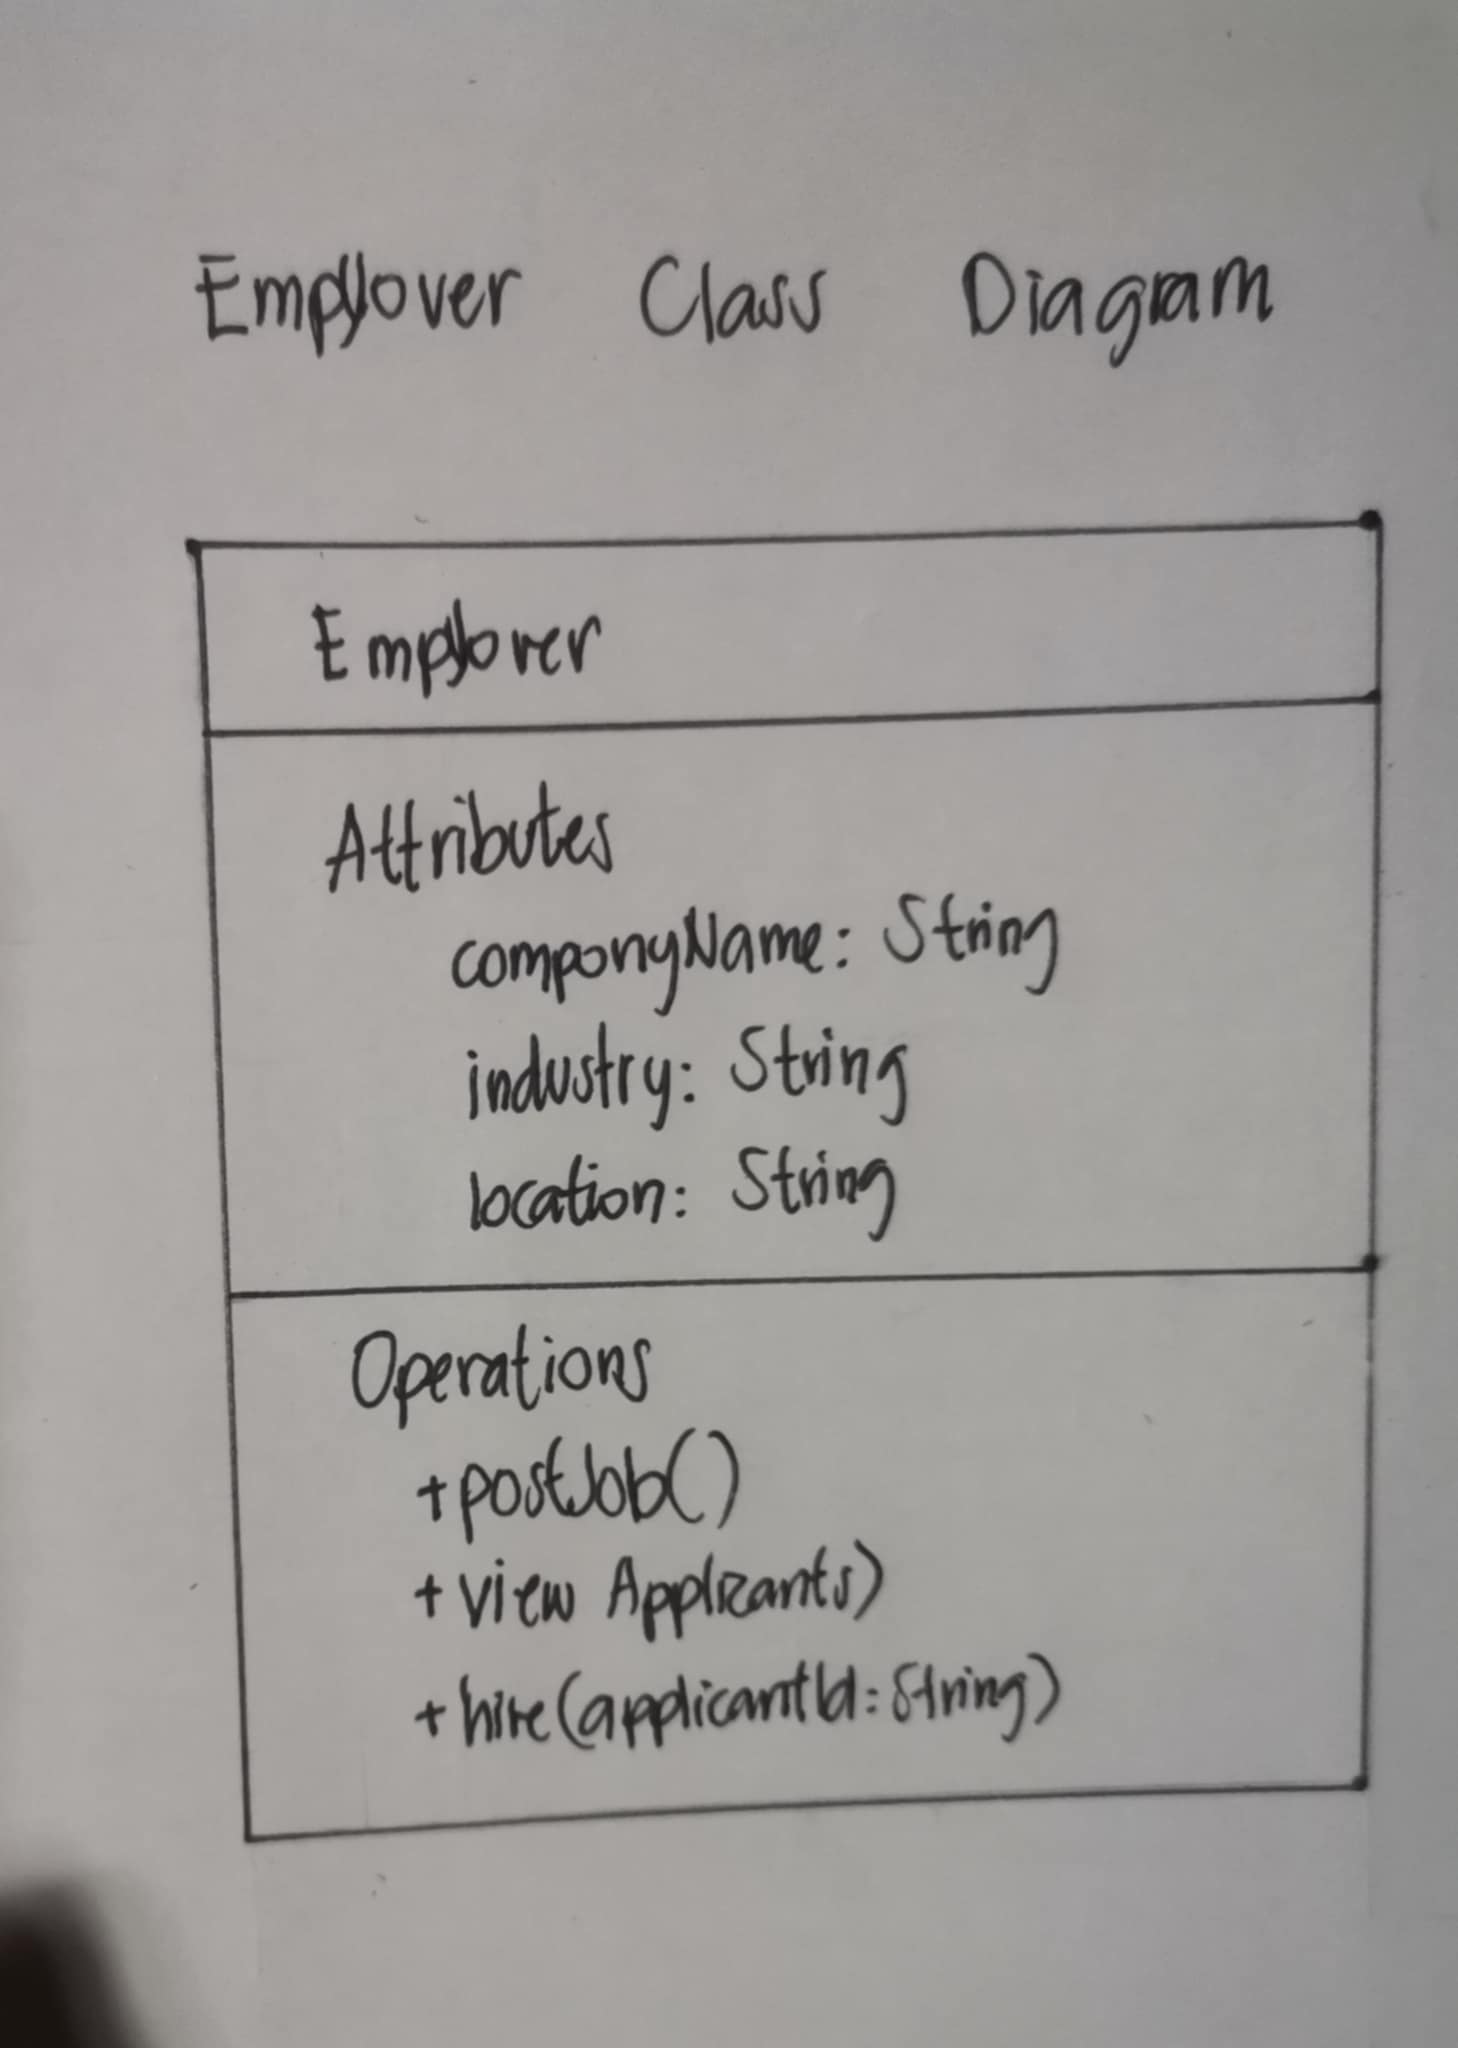 Employer Class Diagram
Employer
Attributes
componyName: String
industry: String
location: String
Operations
+ postJob()
+ view Applicants)
+ hire(applicantId: String)